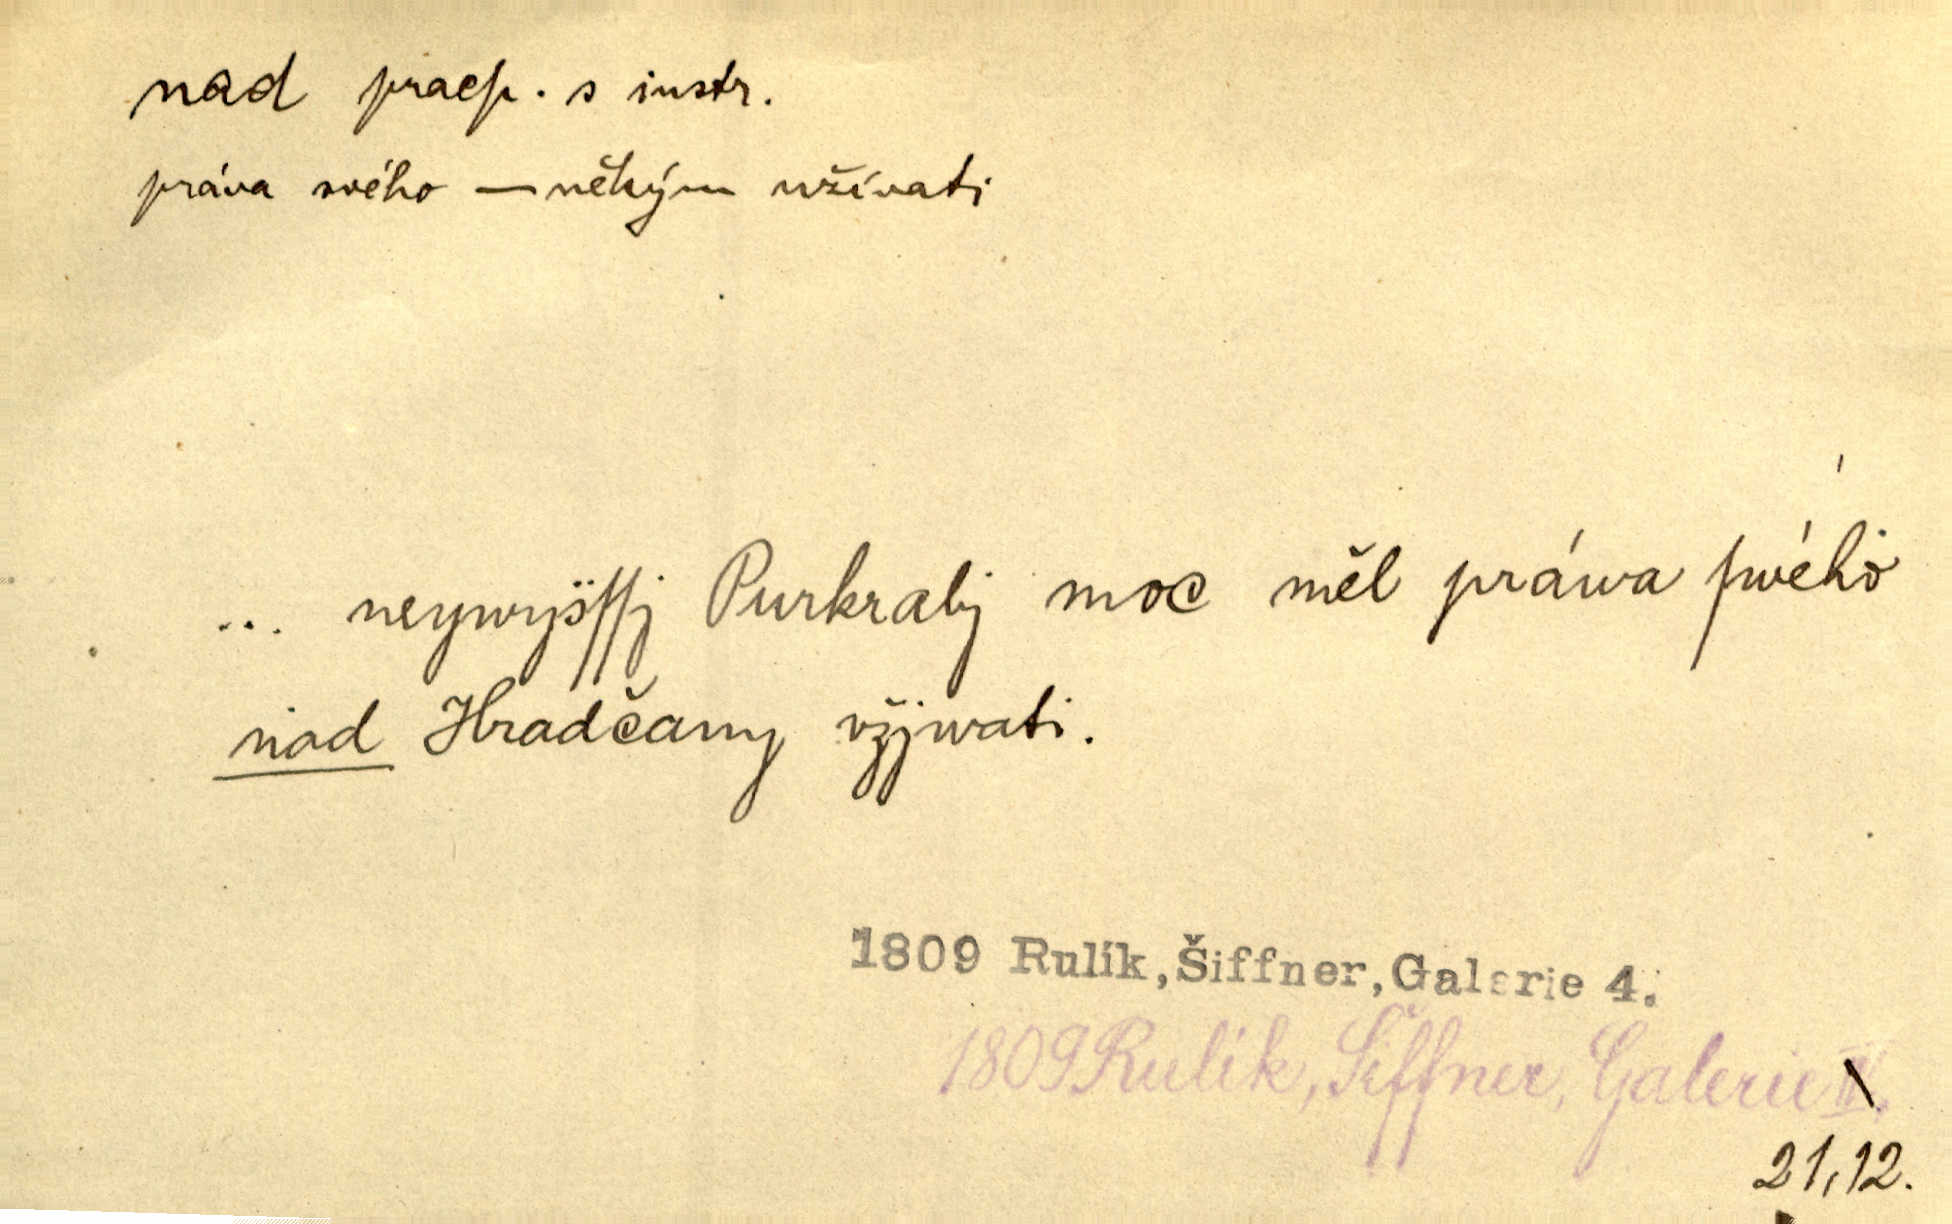 nad praep. s instr.
práva svého — někým užívati
... neywyšſſj Purkrabj moc měl práwa ſwého
nad Hradčany vžjwati.
1809 Rulík, Šiffner, Galerie 4.
1809 Rulík, Šiffner, Galerie
21,12.